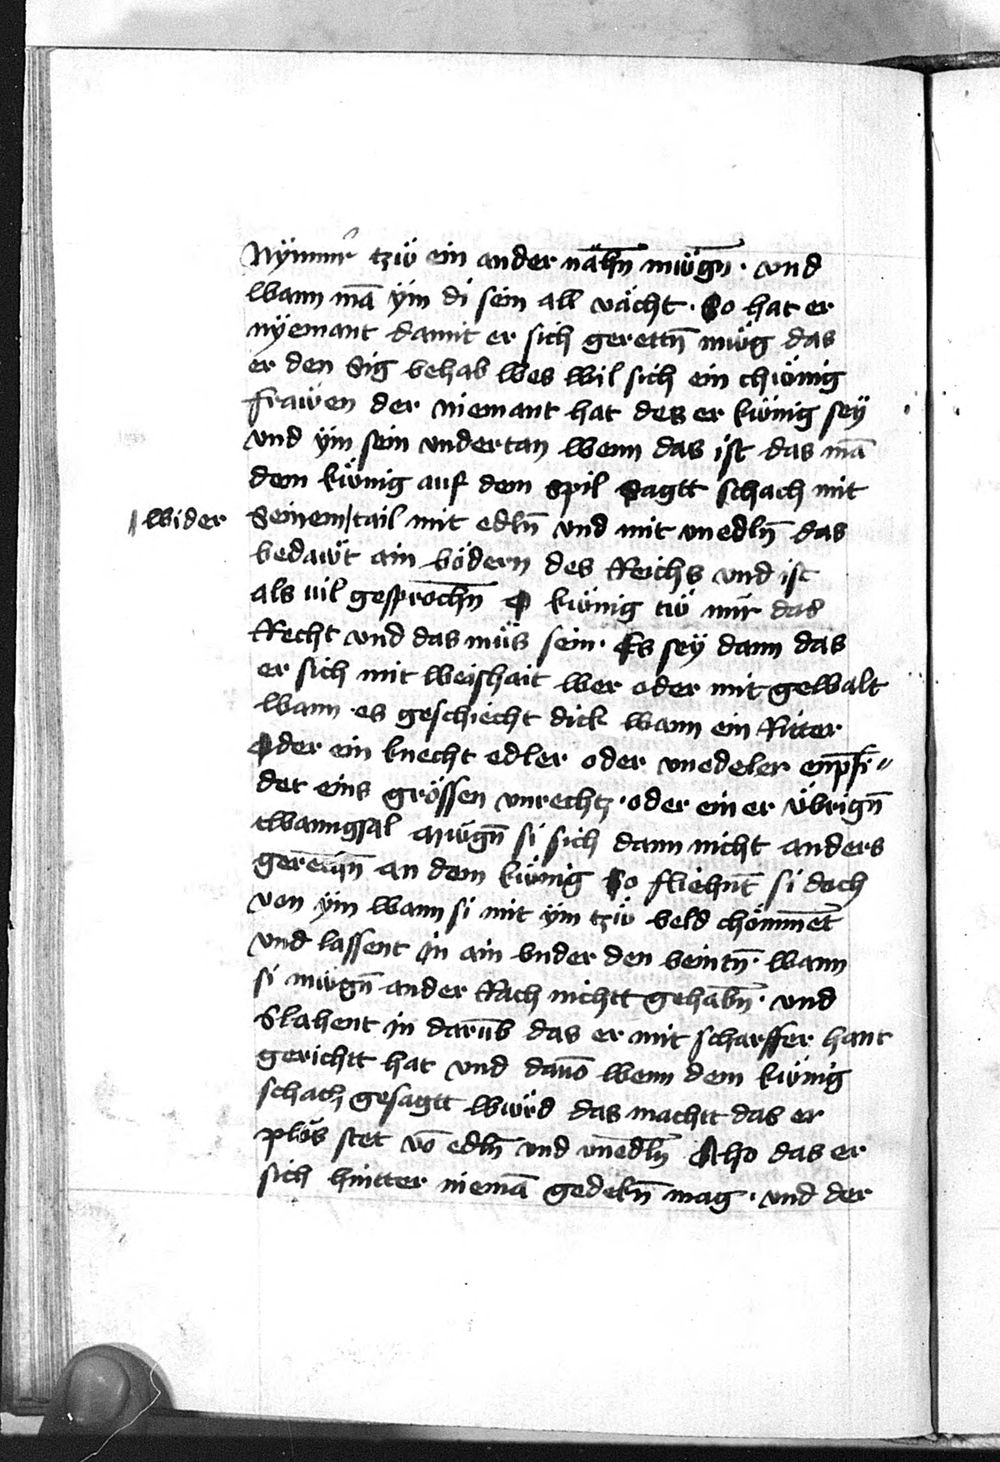 Nÿmmer tzwö ein ander nähn̄ mwögn̄ · vnd
wann mā ÿm di sein all vächt · So hat er
nÿemant damit er sich gerettn̄ mwög das
er den Sig behab wes wil sich ein chwönig
frawen der niemant hat des er kwönig seÿ
vnd ÿm sein vndertan wenn das ist das mā
dem kwönig auf dem Spil Sagtt schach mit
wider
Seinem tail mit edln̄ vnd mit vnedln̄ das
bedawt ain vödern des Reichs vnd ist
als vil gesprochn̄ O kwönig twö mir das
Recht vnd das mües sein · Es seÿ dann das
er sich mit weishait wer oder mit gewalt
wann es geschiecht dick wann ein Ritter
Oder ein knecht edler oder vnedeler enpfi
det eins grössen vnrechtz · oder einer übrign̄
twanngsal mwögn̄ si sich dann nicht anders
gerettn̄ an dem kwönig So fliehnt si doch
von ÿm wann si mit ÿm tzwö veld chömmet
vnd lassent in ain vnder den veintn̄ · wann
si mwögn̄ ander Rach nichtt gehabn̄ · vnd
Slahent in darūb das er mit scharffer hant
gerichtt hat vnd dauō wenn dem kwönig
schach gesagtt wwörd das machtt das er
plos stet vō edln̄ vnd vnedln̄ Also das er
sich hintter niemā gedekn̄ mag · vnd der